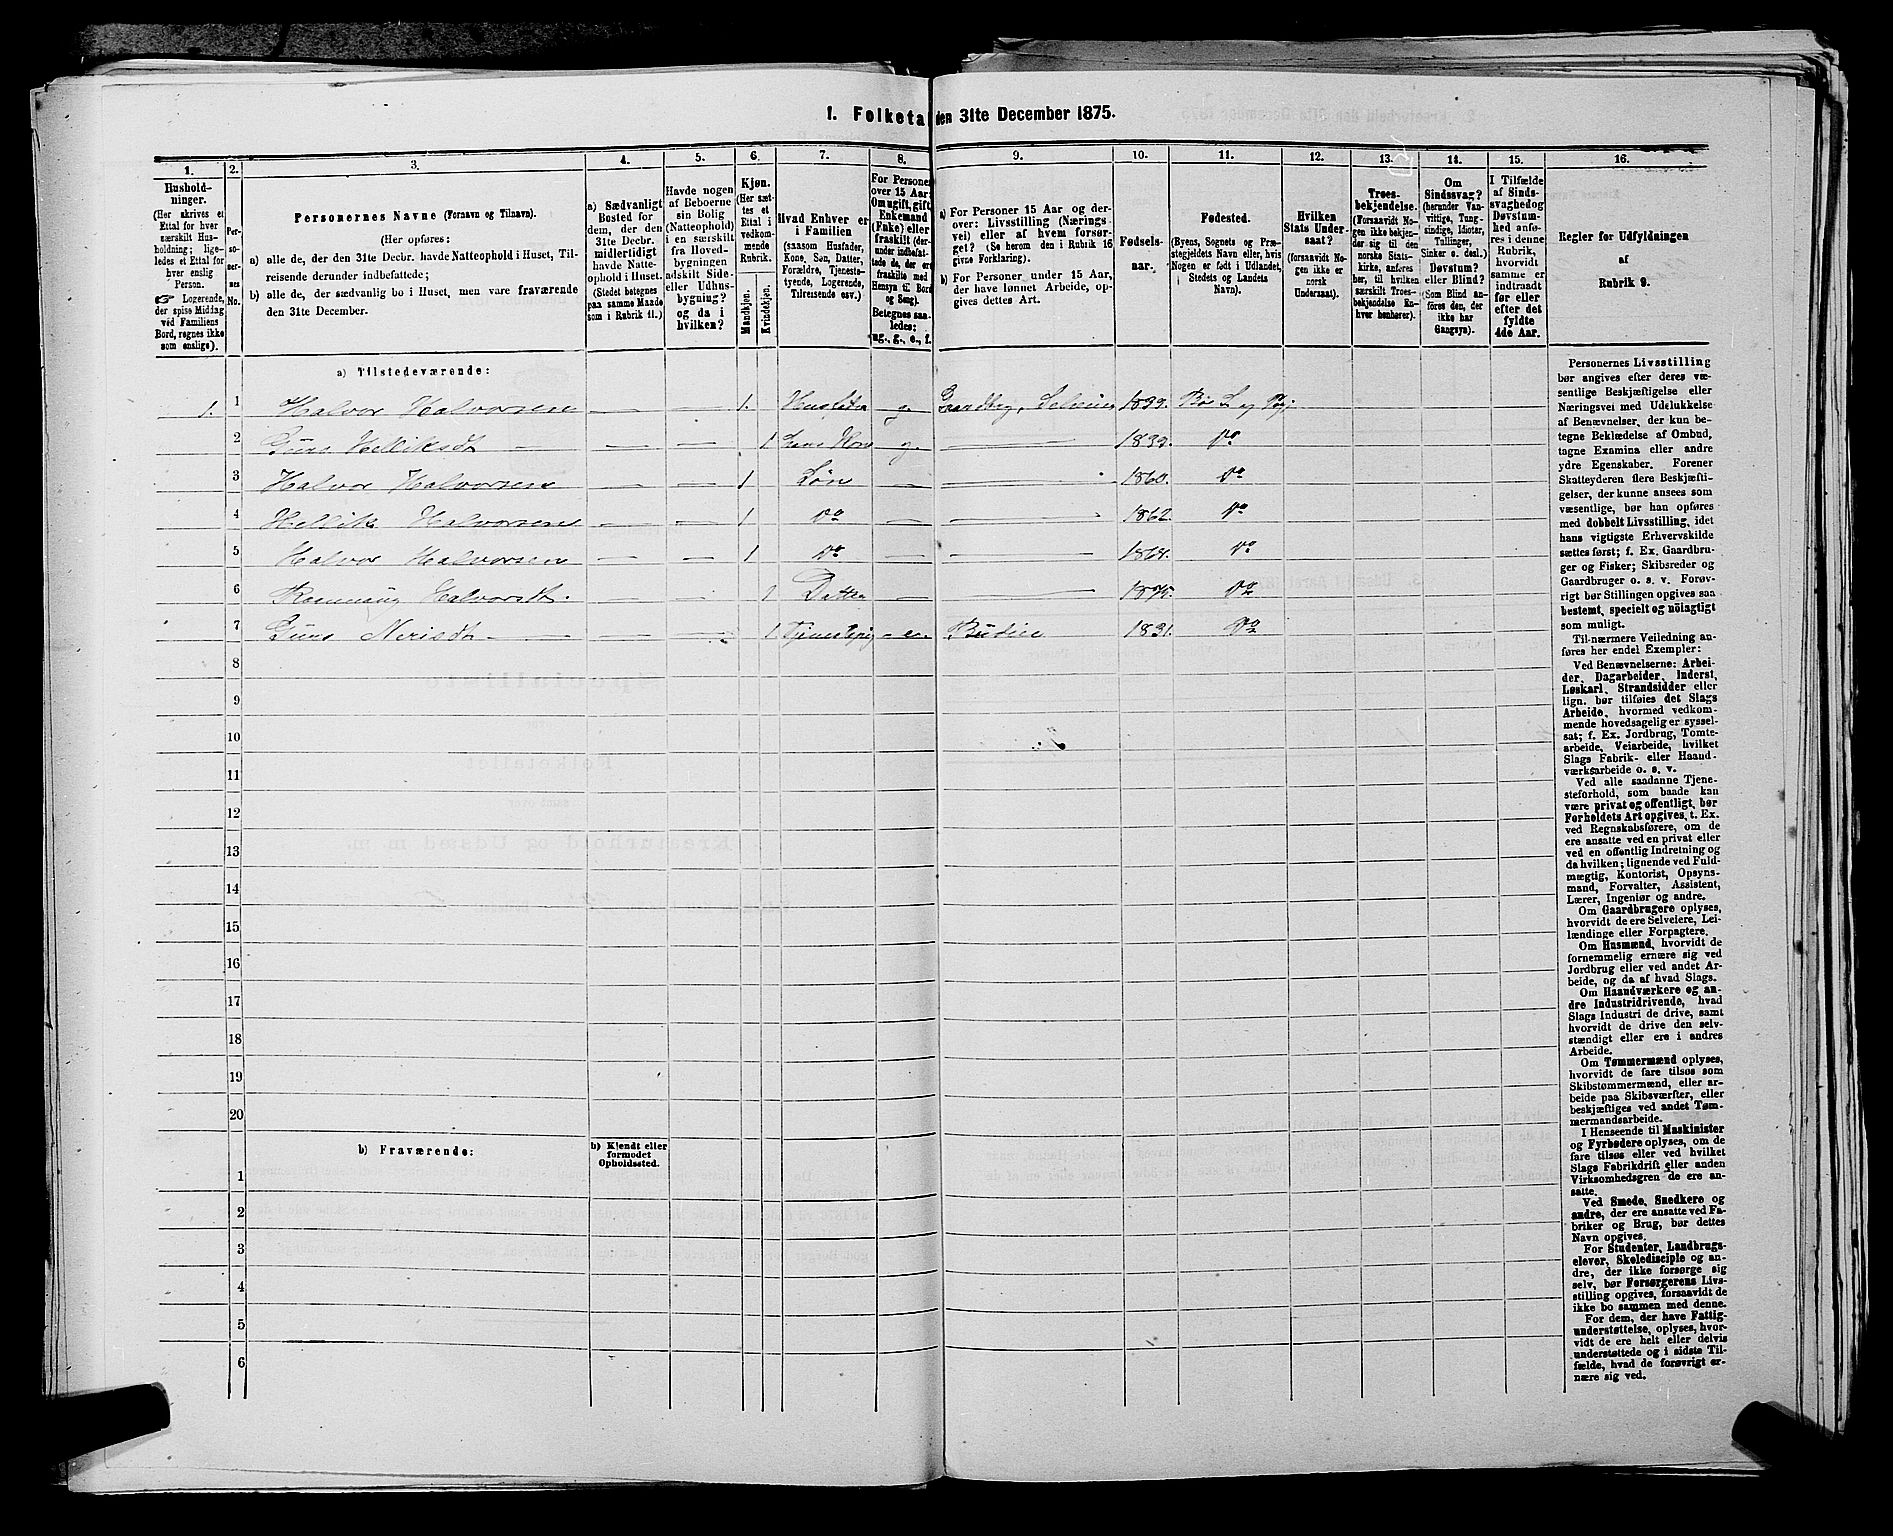 1. Folketal den 31te December 1875.
1. 2. 3. 4. 5. 6. 7. 8. 9. 10. 11. 12. 13. 14. 15. 16.
Hushold-
ninger.
(Her skrives et
Ettal for hver
særskilt Hus-
holdning; lige-
ledes et Ettal for
hver enslig
Person.
☞ Logerende,
der spise Middag
ved Familiens
Bord, regnes ikke
som enslige).
Per-
so-
ner-
nes
No.
Personernes Navne (Fornavn og Tilnavn).
(Her opføres:
a) alle de, der den 31te Decbr. havde Natteophold i Huset, Til-
reisende derunder indbefattede;
b) alle de, der sædvanlig bo i Huset, men vare fraværende
den 31te December.
a) Sædvanligt
Bosted for
dem, der den
31te Decbr.
midlertidigt
havde Natte-
ophold i Huset.
(Stedet betegnes
paa samme Maade
som i Rubrik 11.)
Havde nogen
af Beboerne
sin Bolig
(Natteophold)
i en særskilt
fra Hoved-
bygningen
adskilt Side-
eller Udhus-
bygning?
og da i
hvilken?
Kjøn.
(Her sæt-
tes et
Ettal i
vedkom-
mende
Rubrik.)
Mandkjøn.
Kvindekjøn.
Hvad Enhver er
i Familien
(saasom Husfader,
Kone, Søn, Datter,
Forældre, Tjeneste-
tyende, Logerende,
Tilreisende osv.)
For Personer
over 15 Aar:
Om ugift, gift,
Enkemand
(Enke) eller
fraskilt (der-
under indbefat-
tede de, der ere
fraskilte med
Hensyn til Bord
og Seng).
Betegnes saa-
ledes:
ug., g., e., f.
a) For Personer 15 Aar og der-
over: Livsstilling (Nærings-
vei) eller af hvem forsør-
get? (Se herom den i Rubrik 16
givne Forklaring).
b) For Personer under 15 Aar,
der have lønnet Arbeide, op-
gives dettes Art.
Fødsels-
aar.
Fødested.
(Byens, Sognets og Præ-
stegjeldets Navn, eller, hvis
Nogen er født i Udlandet,
Stedets og Landets
Navn).
Hvilken
Stats Under-
saat?
(forsaavidt No-
gen ikke er
norsk
Undersaat).
Troes-
bekjendelse.
(Forsaavidt No-
gen ikke bekjen-
der sig til den
norske Stats-
kirke, anføres
her, til hvilken
særskilt Troes-
bekjendelse En-
hver henhører).
Om
Sindssvag?
(herunder Van-
vittige, Tung-
sindige, Idioter,
Tullinger,
Sinker o. desl.)
Døvstum?
eller Blind?
(Som Blind an-
føres den, der
ikke har
Gangsyn).
I Tilfælde
af Sinds-
svaghed og
Døvstum-
hed anfø-
res i denne
Rubrik,
hvorvidt
samme er
indtraadt
før eller
efter det
fyldte
4de Aar.
Regler for Udfyldningen
af
Rubrik 9.
a) Tilstedeværende:
1. 1 Halvor Halvorsen — — 1. Husfader g. Gaardbrg, Selveier 1839. Bø
2 Guro Helliksdt — — 1 g. — 1839. Do
3 Halvor Halvorsen — — 1 Søn — — 1860. Do
4 Hellik Halvorsen — — 1 Do — — 1862. Do
5 Halvor Halvorsen — — 1 Do — — Do
6 Halvorsdt. — — 1 Datter — — Do
7 Guro — — 1 Budeie 1831. Do
8
9
10
11
12
13
14
15
16
17
18
19
20
b) Fraværende:
b) Kjendt eller
formodet
Opholdssted.
1
2
3
4
5
6
Personernes Livsstilling
bør angives efter deres væ-
sentlige Beskjæftigelse eller
Næringsvei med Udelukkelse
af Benævnelser, der kun be-
tegne Beklædelse af Ombud,
tagne Examina eller andre
ydre Egenskaber. Forener
Skatteyderen flere Beskjæfti-
gelser, der kunne ansees som
væsentlige, bør han opføres
med dobbelt Livsstilling, idet
hans vigtigste Erhvervskilde
sættes først; f. Ex. Gaardbru-
ger og Fisker; Skibsreder og
Gaardbruger o. s. v. Forøv-
rigt bør Stillingen opgives saa
bestemt, specielt og nøiagtigt
som muligt.
Til nærmere Veiledning an-
føres her endel Exempler:
Ved Benævnelserne: Arbei-
der, Dagarbeider, Inderst,
Løskarl, Strandsidder eller
lign. bør tilføies det Slags
Arbeide, hvormed vedkom-
mende hovedsagelig er syssel-
sat; f. Ex. Jordbrug, Tomte-
arbeide, Veiarbeide, hvilket
Slags Fabrik- eller Haand-
værksarbeide o. s. v.
Ved alle saadanne Tjene-
steforhold, som baade kan
være privat og offentligt, bør
Forholdets Art opgives, t. Ex.
ved Regnskabsførere, om de
ere ansatte ved en privat eller
ved en offentlig Indretning og
da hvilken; lignende ved Fuld-
mægtig, Kontorist, Opsyns-
mand, Forvalter, Assistent,
Lærer, Ingeniør og andre.
Om Gaardbrugere oplyses,
hvorvidt de ere Selveiere, Lei-
lændinge eller Forpagtere.
Om Husmænd, hvorvidt de
fornemmelig ernære sig ved
Jordbrug eller ved andet Ar-
beide, og da af hvad Slags.
Om Haandværkere og an-
dre Industridrivende, hvad
Slags Industri de drive, samt
hvorvidt de drive den selv-
stændigt eller ere i andres
Arbeide.
Om Tømmermænd oplyses,
hvorvidt de fare tilsøs som
Skibstømmermænd, eller ar-
beide paa Skibsværfter, eller
beskjæftiges ved andet Tøm-
mermandsarbeide.
I Henseende til Maskinister
og Fyrbødere oplyses, om de
fare tilsøs eller ved hvilket
Slags Fabrikdrift eller anden
Virksomhedsgren de ere an-
satte.
Ved Smede, Snedkere og
andre, der ere ansatte ved Fa-
briker og Brug, bør dettes
Navn opgives.
For Studenter, Landbrugs-
elever, Skoledisciple og an-
dre, der ikke forsørge sig
selv, bør Forsørgerens Livs-
stilling opgives, forsaavidt de
ikke bo sammen med denne.
For dem, der have Fattig-
understøttelse, oplyses, hvor-
vidt de ere helt eller delvis
understøttede og i sidste Til-
fælde, hvad de forøvrigt er-
nære sig ved.